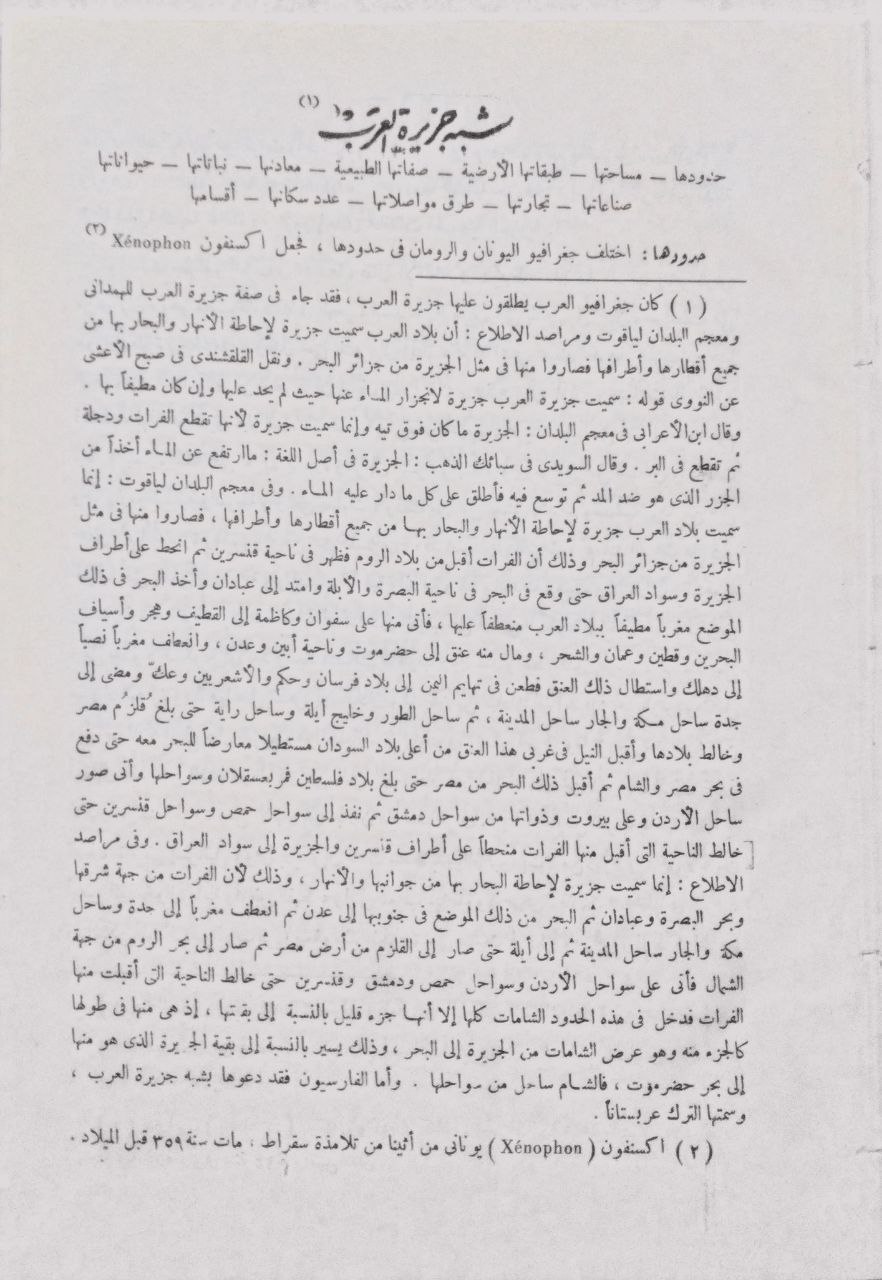 شبه جزيرة العرب (١)
حدودها – مساحتها – طبقاتها الأرضية – صفاتها الطبيعية – معادنها – نباتاتها – حيواناتها
صناعاتها – تجارتها – طرق مواصلاتها – عدد سكانها – أقسامها
حدودها : اختلف جغرافيو اليونان والرومان فى حدودها ، فجعل اكسنفون Xénophon (٢)
( ١ ) كان جغرافيو العرب يطلقون عليها جزيرة العرب ، فقد جاء فى صفة جزيرة العرب للهمدانى
ومعجم البلدان لياقوت ومراصد الاطلاع : أن بلاد العرب سميت جزيرة لإحاطة الأنهار والبحار بها من
جميع أقطارها وأطرافها فصاروا منها فى مثل الجزيرة من جزائر البحر . ونقل القلقشندى فى صبح الأعشى
عن النووى قوله : سميت جزيرة العرب جزيرة لانجزار الماء عنها حيث لم يحد عليها وإن كان مطيفاً بها .
وقال ابن الأعرابى فى معجم البلدان : الجزيرة ما كان فوق تيه وإنما سميت جزيرة لأنها تقطع الفرات ودجلة
ثم تقطع فى البر . وقال السويدى فى سبائك الذهب : الجزيرة فى أصل اللغة : ما ارتفع عن الماء أخذاً من
الجزر الذى هو ضد المد ثم توسع فيه فأطلق على كل ما دار عليه الماء . وفى معجم البلدان لياقوت : إنما
سميت بلاد العرب جزيرة لإحاطة الأنهار والبحار بها من جميع أقطارها وأطرافها ، فصاروا منها فى مثل
الجزيرة من جزائر البحر وذلك أن الفرات أقبل من بلاد الروم فظهر فى ناحية قنسرين ثم انحط على أطراف
الجزيرة وسواد العراق حتى وقع فى البحر فى ناحية البصرة والأبلة وامتد إلى عبادان وأخذ البحر فى ذلك
الموضع مغرباً مطيفاً ببلاد العرب منعطفاً عليها ، فأتى منها على سفوان وكاظمة إلى القطيف وهجر وأسياف
البحرين وقطين وعمان والشحر ، ومال منه عنق إلى حضرموت وناحية أبين وعدن ، وانعطف مغرباً نصباً
إلى دهلك واستطال ذلك العنق فطعن فى تهايم اليمن إلى بلاد فرسان وحكم والأشعريين وعكّ ومضى إلى
جدة ساحل مكة والجار ساحل المدينة ، ثم ساحل الطور وخليج أيلة وساحل راية حتى بلغ قُلزُم مصر
وخالط بلادها وأقبل النيل فى غربى هذا العنق من أعلى بلاد السودان مستطيلا معارضاً للبحر معه حتى دفع
فى بحر مصر والشام ثم أقبل ذلك البحر من مصر حتى بلغ بلاد فلسطين فمر بعسقلان وسواحلها وأتى صور
ساحل الأردن وعلى بيروت وذواتها من سواحل دمشق ثم نفذ إلى سواحل حمص وسواحل قنسرين حتى
خالط الناحية التى أقبل منها الفرات منحطاً على أطراف قنسرين والجزيرة إلى سواد العراق . وفى مراصد
الاطلاع : إنما سميت جزيرة لإحاطة البحار بها من جوانبها والأنهار ، وذلك لأن الفرات من جهة شرقها
وبحر البصرة وعبادان ثم البحر من ذلك الموضع فى جنوبيها إلى عدن ثم انعطف مغرباً إلى جدة وساحل
مكة والجار ساحل المدينة ثم إلى أيلة حتى صار إلى القلزم من أرض مصر ثم صار إلى بحر الروم من جهة
الشمال فأتى على سواحل الأردن وسواحل حمص ودمشق وقنسرين حتى خالط الناحية التى أقبلت منها
الفرات فدخل فى هذه الحدود الشامات كلها إلا أنها جزء قليل بالنسبة إلى بقيتها ، إذ هى منها فى طولها
كالجزء منه وهو عرض الشامات من الجزيرة إلى البحر ، وذلك يسير بالنسبة إلى بقية الجزيرة الذى هو منها
إلى بحر حضرموت ، فالشام ساحل من سواحلها . وأما الفارسيون فقد دعوها بشبه جزيرة العرب ،
وسمتها الترك عربستاناً .
( ٢ ) اكسنفون ( Xénophon ) يونانى من أثينا من تلامذة سقراط ، مات سنة ٣٥٩ قبل الميلاد .